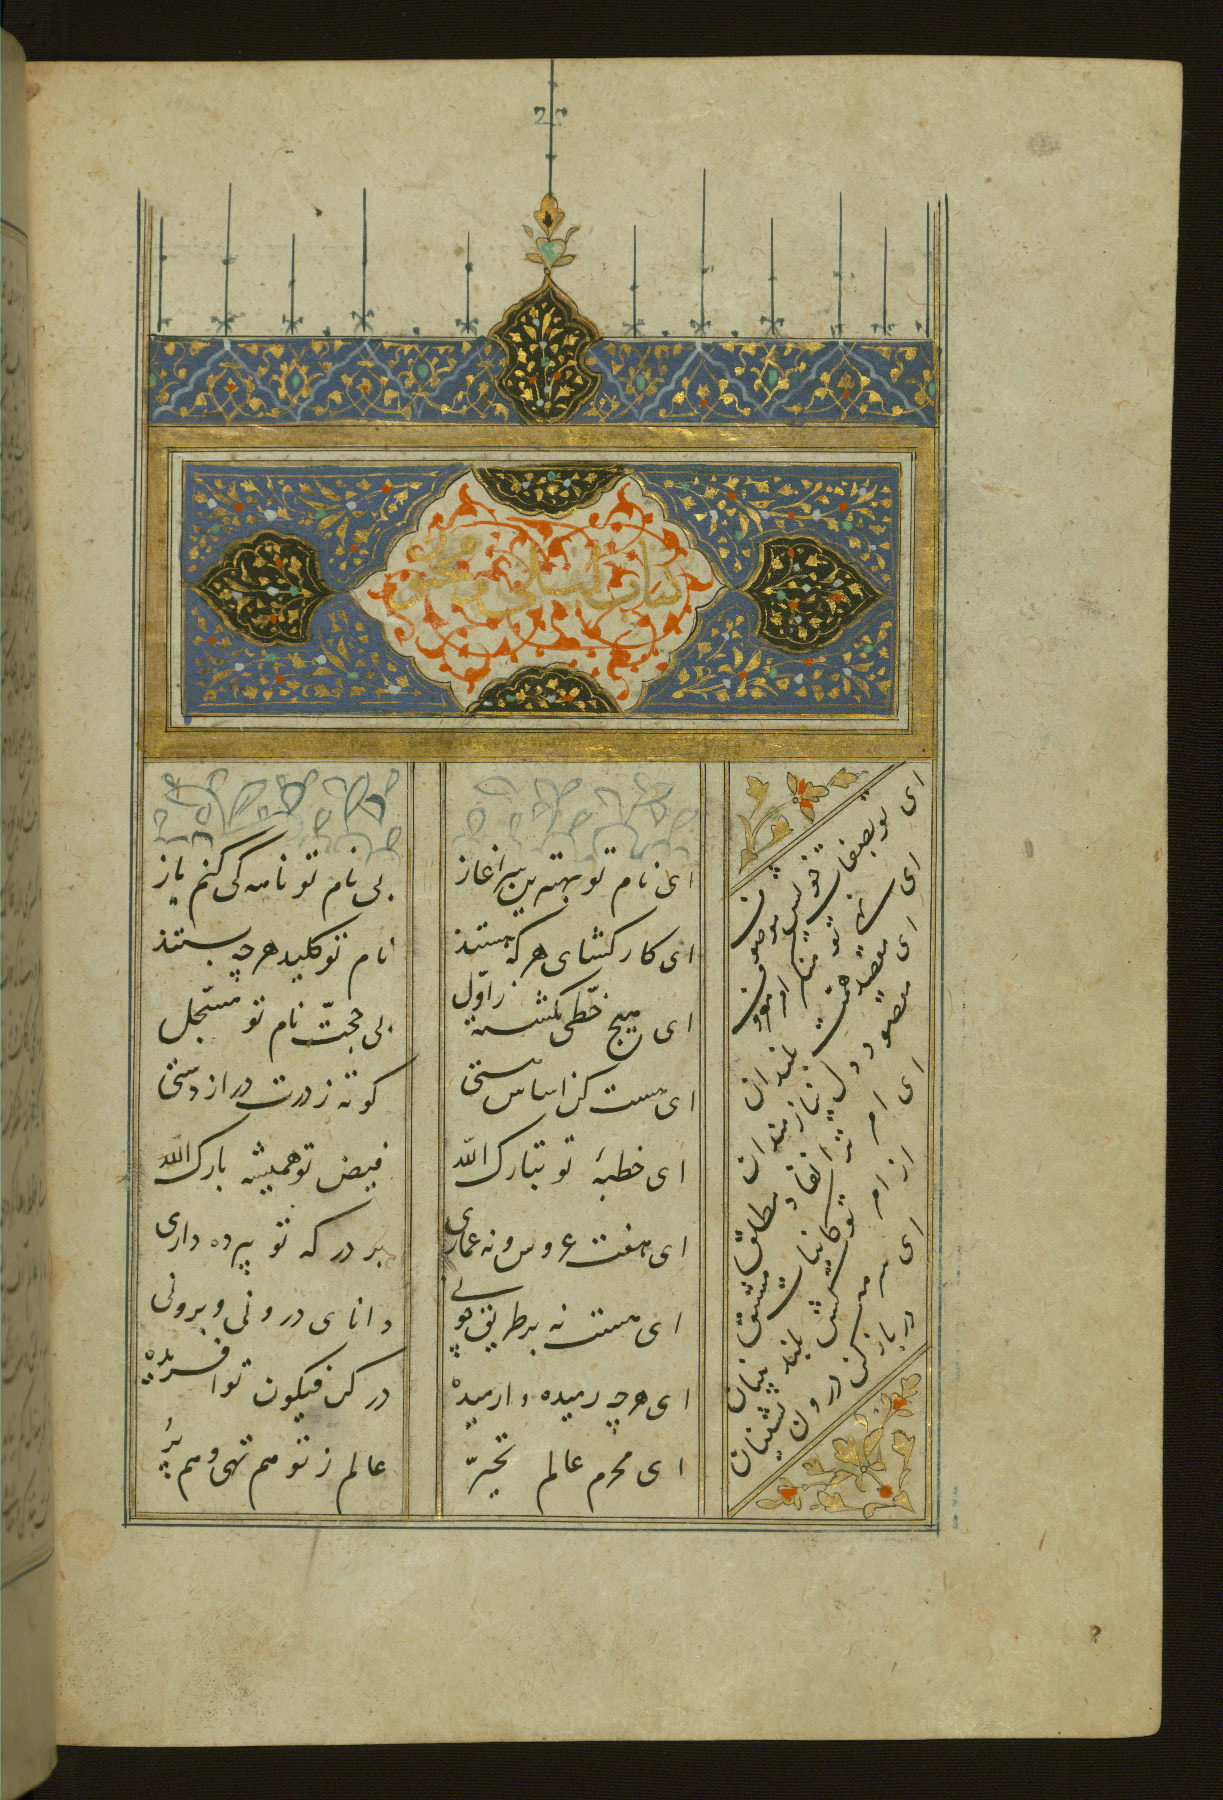 کتاب لیلی و مجنون
ای نام تو بهترین سر آغاز
بی نام تو نامه کی کنم باز
ای کار کشای هر که هستند
نام تو کلید هر چه بستند
ای هیچ خطی نگشته ز اول
بی حجت نام تو مسجل
ای هست کن اساس هستی
کوته ز درت دراز دستی
ای خطبۀ تو تبارک الله
فیض تو همیشه بارک الله
ای هفت عروس و نه عماری
بر درگه تو پرده داری
ای هست نه بر طریق چونی
دانای درونی و برونی
ای هرچه رمیده وارمیده
در کن فیکون تو آفریده
ای محرم عالم تحیر
عالم ز تو هم تهی و هم پر
ای تو بصفات خویش موصوف
ای نهی تو منکر امر معروف
ای مقصد همت بلندان
مقصود دل نیازمندان
ای امر ترا نفاذ مطلق
از امر تو کاینات مشتق
ای سرمه کش بلند بینان
در باز کن درون نشینان